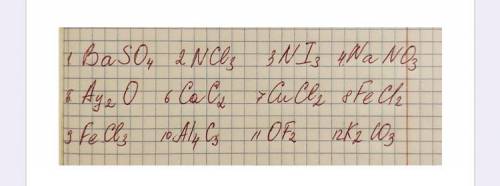 1 BaSO4 2 NCl3 3 NI3 4. NaNO3
5 Ag2O 6 CaC2 7 CuCl2 8 FeCl2
9 FeCl3 10. Al4C3 11 OF2 12 K2CO3